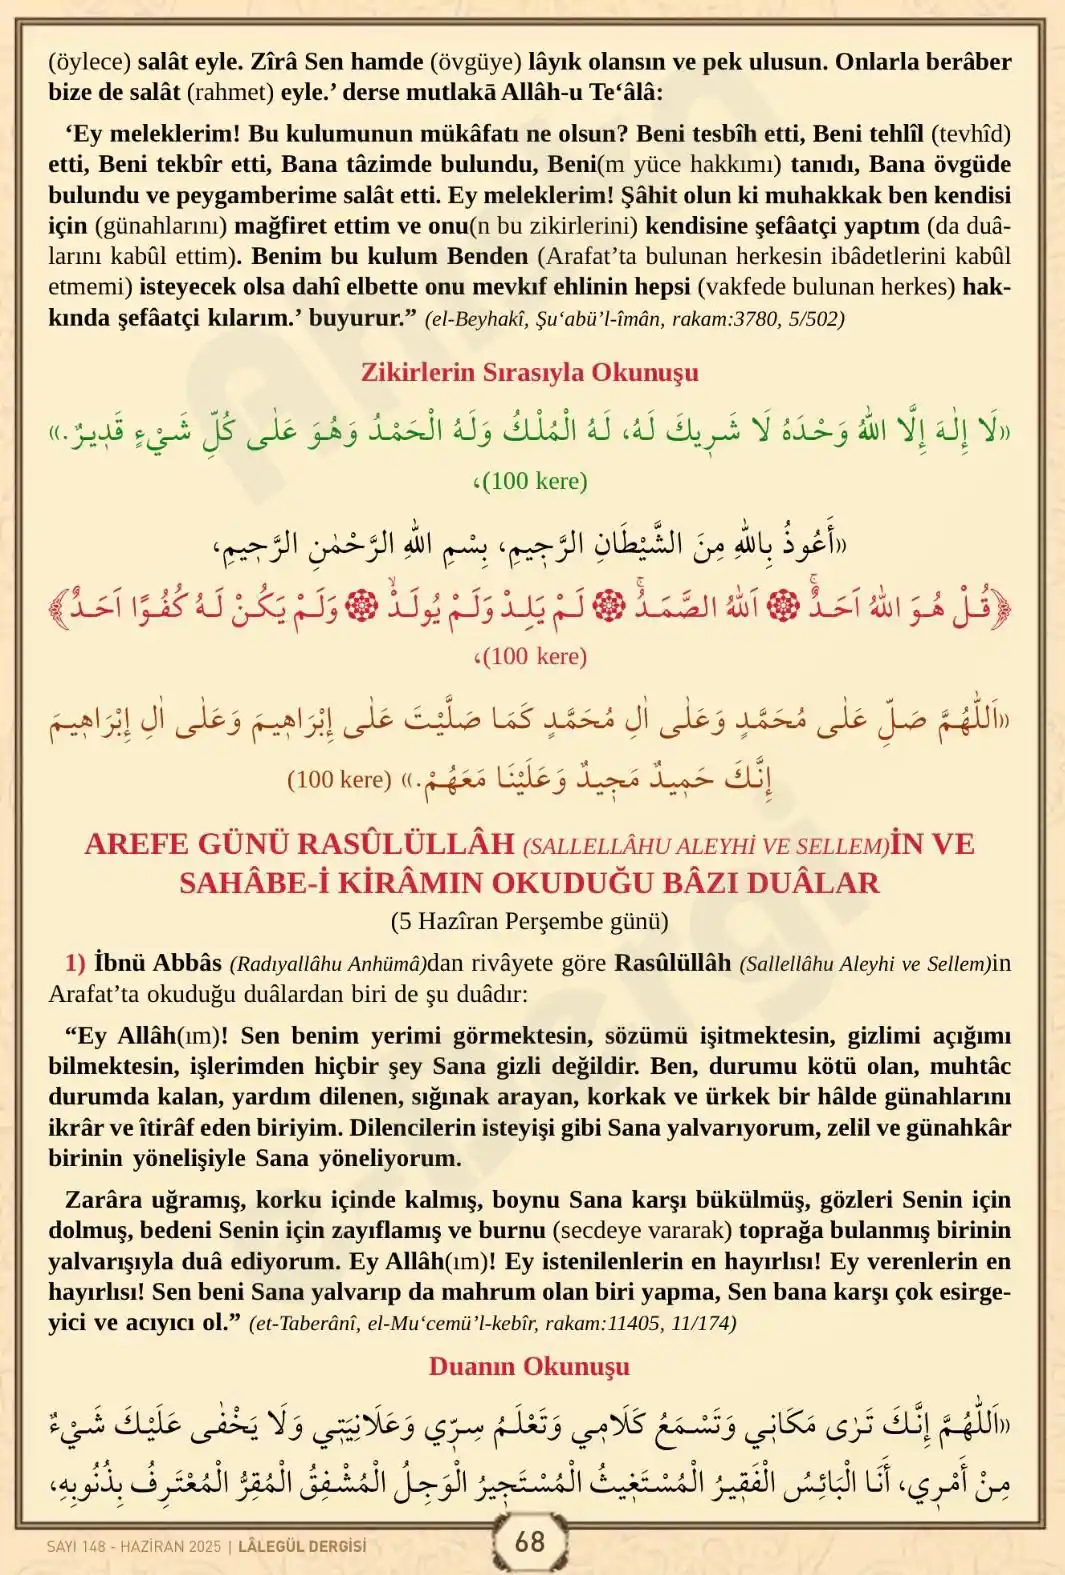 (öylece) salât eyle. Zîrâ Sen hamde (övgüye) lâyık olansın ve pek ulusun. Onlarla berâber
bize de salât (rahmet) eyle.’ derse mutlakā Allâh-u Te‘âlâ:
‘Ey meleklerim! Bu kulumunun mükâfatı ne olsun? Beni tesbîh etti, Beni tehlîl (tevhîd)
etti, Beni tekbîr etti, Bana tâzimde bulundu, Beni(m yüce hakkımı) tanıdı, Bana övgüde
bulundu ve peygamberime salât etti. Ey meleklerim! Şâhit olun ki muhakkak ben kendisi
için (günahlarını) mağfiret ettim ve onu(n bu zikirlerini) kendisine şefâatçi yaptım (da duâ-
larını kabûl ettim). Benim bu kulum Benden (Arafat’ta bulunan herkesin ibâdetlerini kabûl
etmemi) isteyecek olsa dahî elbette onu mevkıf ehlinin hepsi (vakfede bulunan herkes) hak-
kında şefâatçi kılarım.’ buyurur.” (el-Beyhakî, Şu‘abü’l-îmân, rakam:3780, 5/502)
Zikirlerin Sırasıyla Okunuşu
«لَا إِلٰهَ إِلَّا اللهُ وَحْدَهُ لَا شَرِيكَ لَهُ، لَهُ الْمُلْكُ وَلَهُ الْحَمْدُ وَهُوَ عَلٰى كُلِّ شَيْءٍ قَدِيرٌ.»
(100 kere)،
«أَعُوذُ بِاللهِ مِنَ الشَّيْطَانِ الرَّجِيمِ، بِسْمِ اللهِ الرَّحْمٰنِ الرَّحِيمِ،
﴿قُلْ هُوَ اللهُ اَحَدٌۚ ۞ اَللهُ الصَّمَدُۚ ۞ لَمْ يَلِدْ وَلَمْ يُولَدْۙ ۞ وَلَمْ يَكُنْ لَهُ كُفُوًا اَحَدٌ﴾
(100 kere)،
«اَللّٰهُمَّ صَلِّ عَلٰى مُحَمَّدٍ وَعَلٰى اٰلِ مُحَمَّدٍ كَمَا صَلَّيْتَ عَلٰى إِبْرَاهِيمَ وَعَلٰى اٰلِ إِبْرَاهِيمَ
إِنَّكَ حَمِيدٌ مَجِيدٌ وَعَلَيْنَا مَعَهُمْ.» (100 kere)
AREFE GÜNÜ RASÛLÜLLÂH (SALLELLÂHU ALEYHİ VE SELLEM)İN VE
SAHÂBE-İ KİRÂMIN OKUDUĞU BÂZI DUÂLAR
(5 Hazîran Perşembe günü)
1) İbnü Abbâs (Radıyallâhu Anhümâ)dan rivâyete göre Rasûlüllâh (Sallellâhu Aleyhi ve Sellem)in
Arafat’ta okuduğu duâlardan biri de şu duâdır:
“Ey Allâh(ım)! Sen benim yerimi görmektesin, sözümü işitmektesin, gizlimi açığımı
bilmektesin, işlerimden hiçbir şey Sana gizli değildir. Ben, durumu kötü olan, muhtâc
durumda kalan, yardım dilenen, sığınak arayan, korkak ve ürkek bir hâlde günahlarını
ikrâr ve îtirâf eden biriyim. Dilencilerin isteyişi gibi Sana yalvarıyorum, zelil ve günahkâr
birinin yönelişiyle Sana yöneliyorum.
Zarâra uğramış, korku içinde kalmış, boynu Sana karşı bükülmüş, gözleri Senin için
dolmuş, bedeni Senin için zayıflamış ve burnu (secdeye vararak) toprağa bulanmış birinin
yalvarışıyla duâ ediyorum. Ey Allâh(ım)! Ey istenilenlerin en hayırlısı! Ey verenlerin en
hayırlısı! Sen beni Sana yalvarıp da mahrum olan biri yapma, Sen bana karşı çok esirge-
yici ve acıyıcı ol.” (et-Taberânî, el-Mu‘cemü’l-kebîr, rakam:11405, 11/174)
Duanın Okunuşu
«اَللّٰهُمَّ إِنَّكَ تَرٰى مَكَانِي وَتَسْمَعُ كَلَامِي وَتَعْلَمُ سِرِّي وَعَلَانِيَتِي وَلَا يَخْفٰى عَلَيْكَ شَيْءٌ
مِنْ أَمْرِي، أَنَا الْبَائِسُ الْفَقِيرُ الْمُسْتَغِيثُ الْمُسْتَجِيرُ الْوَجِلُ الْمُشْفِقُ الْمُقِرُّ الْمُعْتَرِفُ بِذُنُوبِهِ،
SAYI 148 - HAZİRAN 2025 | LÂLEGÜL DERGİSİ
68